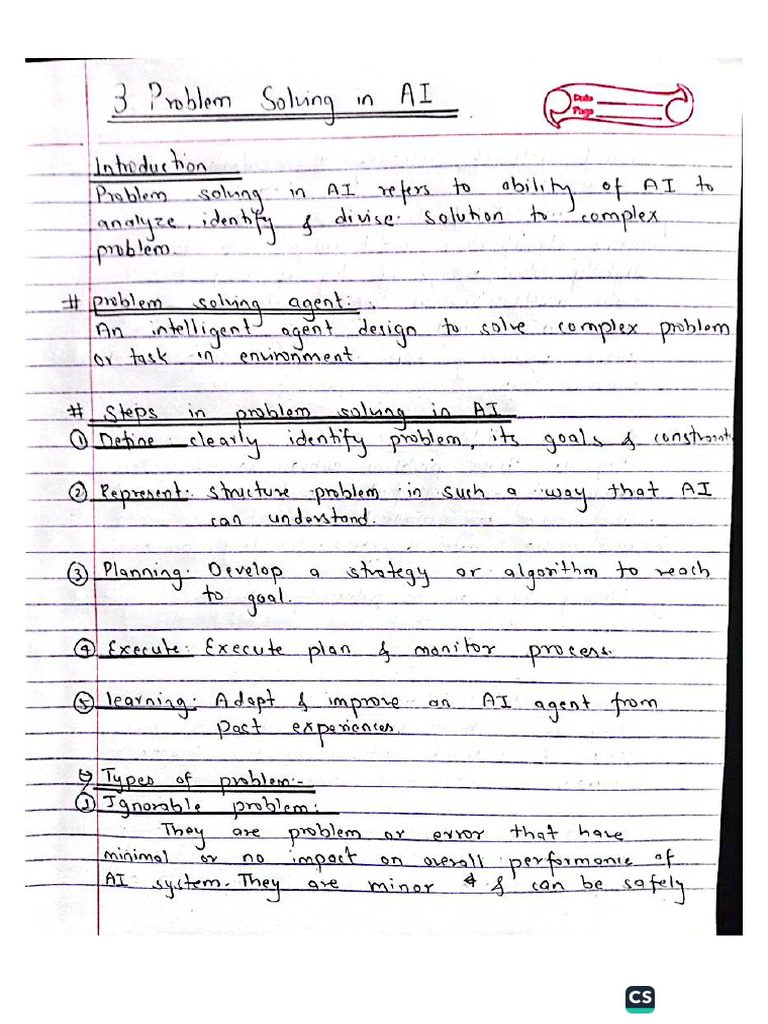 3 Problem Solving in AI
Date
Page
Introduction
Problem solving in AI refers to ability of AI to
analyze, identify & divise solution to complex
problem.
# problem solving agent:
An intelligent agent design to solve complex problem
or task in environment
# Steps in problem solving in AI
① Define: clearly identify problem, its goals & constraints
② Represent: structure problem in such a way that AI
can understand.
③ Planning: Develop a strategy or algorithm to reach
to goal.
④ Execute: Execute plan & monitor process.
⑤ learning: Adapt & improve an AI agent from
past experiences.
Types of problem:-
① Ignorable problem:
They are problem or error that have
minimal or no impact on overall performance of
AI system. They are minor & can be safely
CS